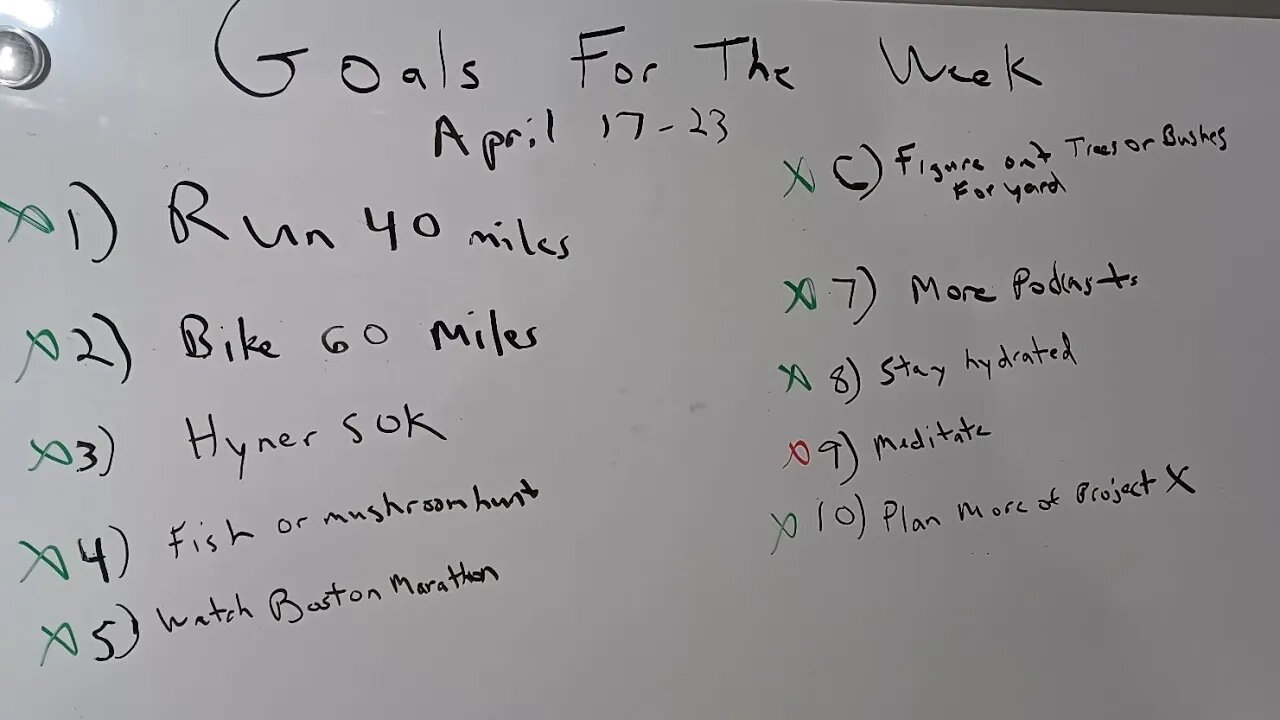 Goals For The Week
April 17-23
X 1) Run 40 miles
X 2) Bike 60 Miles
X 3) Hyner 50K
X 4) Fish or mushroom hunt
X 5) Watch Boston Marathon
X 6) Figure out Trees or Bushes
For yard
X 7) More Podcasts
X 8) Stay hydrated
X 9) Meditate
X 10) Plan More of Project X